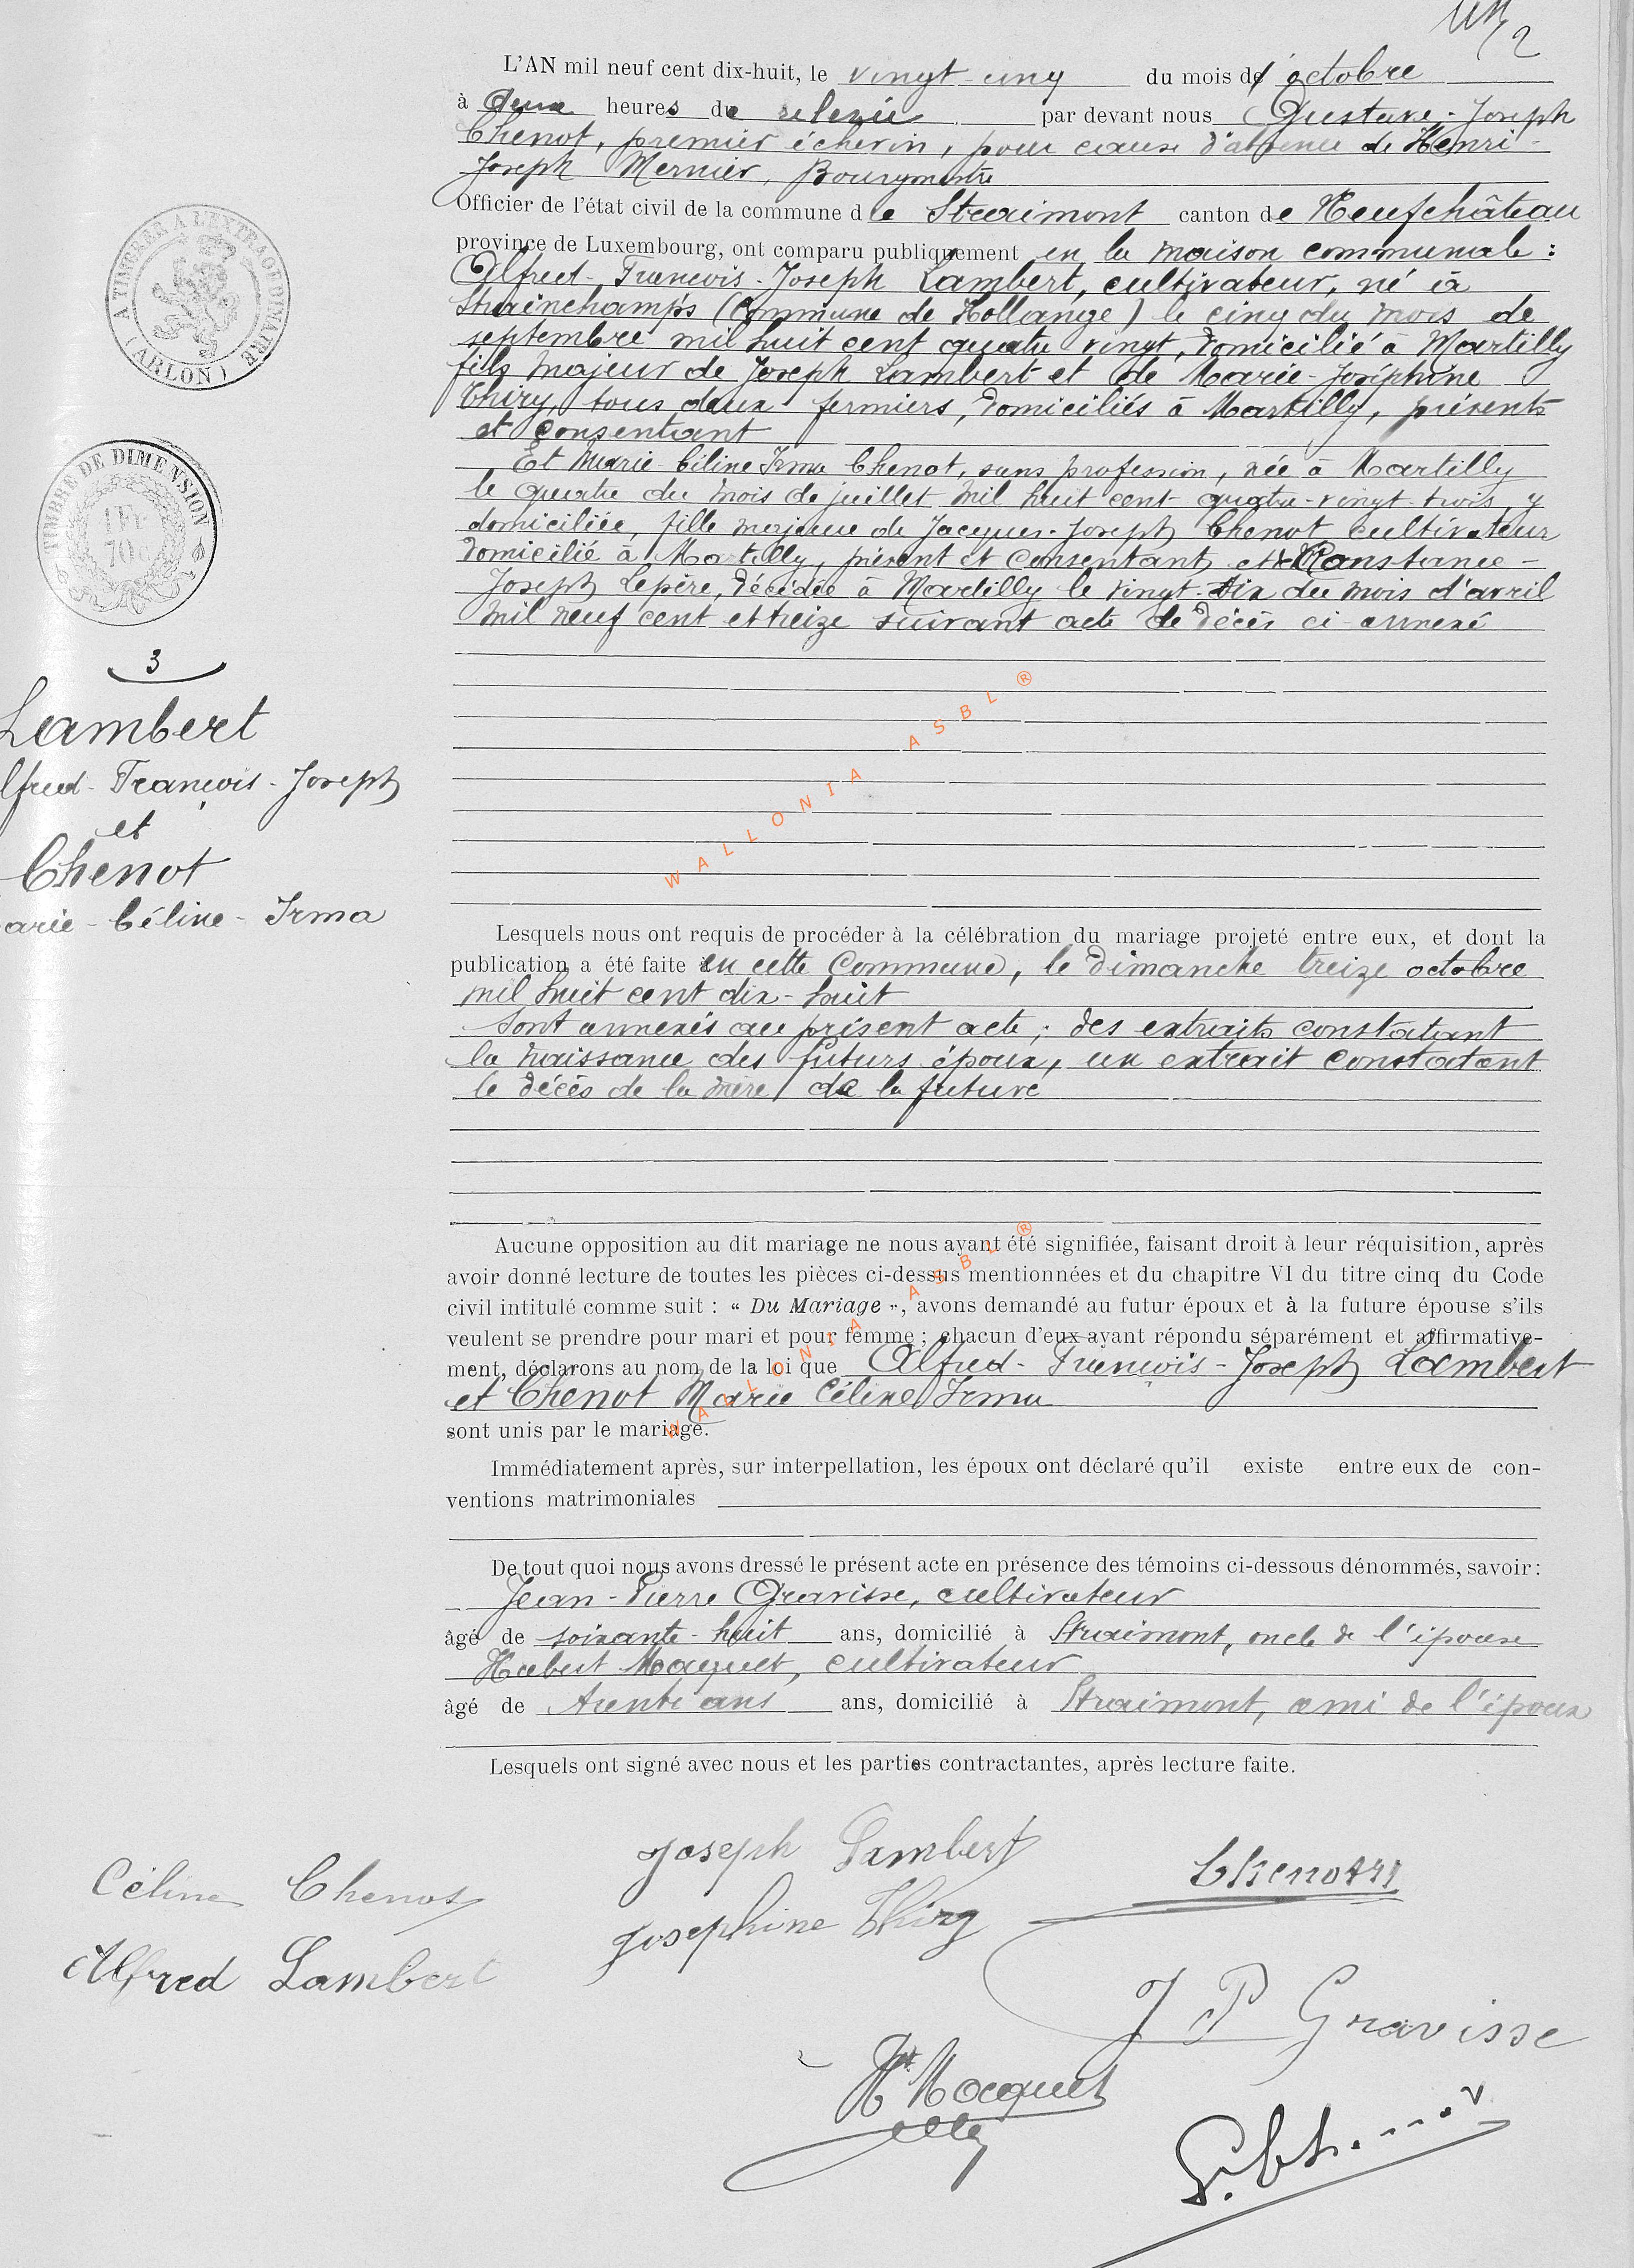 2
L'AN mil neuf cent dix-huit, le vingt-cinq du mois d' octobre
à deux heures de relevée par devant nous Gustave-Joseph
Chenot, premier échevin, pour cause d'absence de Henri-
Joseph Mernier, Bourgmestre
Officier de l'état civil de la commune de Straimont canton de Neufchâteau
province de Luxembourg, ont comparu publiquement en la maison communale :
Alfred-François-Joseph Lambert, cultivateur, né à
Strainchamps (Commune de Hollange) le cinq du mois de
septembre mil huit cent quatre vingt, domicilié à Martilly
fils majeur de Joseph Lambert et de Marie-Joséphine
Thiry, tous deux fermiers, domiciliés à Martilly, présents
et consentant
Et Marie Céline Irma Chenot, sans profession, née à Martilly
le quatre du mois de juillet mil huit cent quatre-vingt-trois, y
domiciliée, fille majeure de Jacques-Joseph Chenot cultivateur
domicilié à Martilly, présent et consentant et Constance-
Joseph Lepère, décédée à Martilly le vingt-six du mois d'avril
mil neuf cent et treize suivant acte de décès ci-annexé
A TIMBRER A L'EXTRAORDINAIRE
(ARLON)
TIMBRE DE DIMENSION
1 Fr
70 c
3
Lambert
lfred-François-Joseph
et
Chenot
arie-Céline-Irma
WALLONIA ASBL ®
Lesquels nous ont requis de procéder à la célébration du mariage projeté entre eux, et dont la
publication a été faite en cette Commune, le dimanche treize octobre
mil huit cent dix-huit
Sont annexés au présent acte ; des extraits constatant
la naissance des futurs époux, un extrait constatant
le décès de la mère de la future
Aucune opposition au dit mariage ne nous ayant été signifiée, faisant droit à leur réquisition, après
avoir donné lecture de toutes les pièces ci-dessus mentionnées et du chapitre VI du titre cinq du Code
civil intitulé comme suit : « Du Mariage », avons demandé au futur époux et à la future épouse s'ils
veulent se prendre pour mari et pour femme ; chacun d'eux ayant répondu séparément et affirmative-
ment, déclarons au nom de la loi que Alfred-François-Joseph Lambert
et Chenot Marie Céline Irma
sont unis par le mariage.
WALLONIA ASBL ®
Immédiatement après, sur interpellation, les époux ont déclaré qu'il existe entre eux de con-
ventions matrimoniales
De tout quoi nous avons dressé le présent acte en présence des témoins ci-dessous dénommés, savoir :
Jean-Pierre Gravisse, cultivateur
âgé de soixante-huit ans, domicilié à Straimont, oncle de l'épouse
Hubert Macquet, cultivateur
âgé de trente ans ans, domicilié à Straimont, ami de l'époux
Lesquels ont signé avec nous et les parties contractantes, après lecture faite.
Joseph Lambert
Céline Chenot
Josephine Thiry
Alfred Lambert
J P Gravisse
Ht Macquet